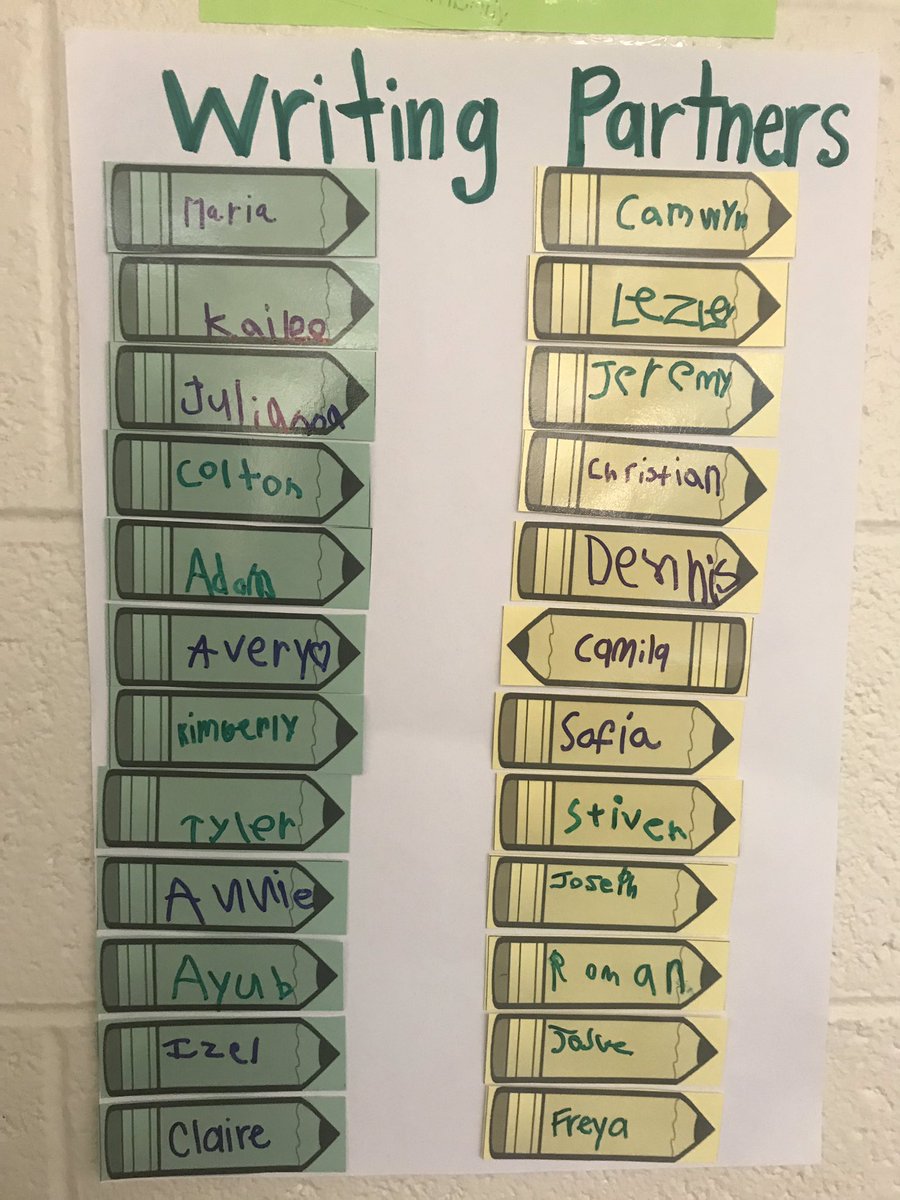 Writing Partners
Maria Camwyn
Kailee Lezle
Julianna Jeremy
Colton Christian
Adam Dennis
Avery Camila
Kimberly Sofia
Tyler Stiven
Annie Joseph
Ayub Roman
Izel Josue
Claire Freya